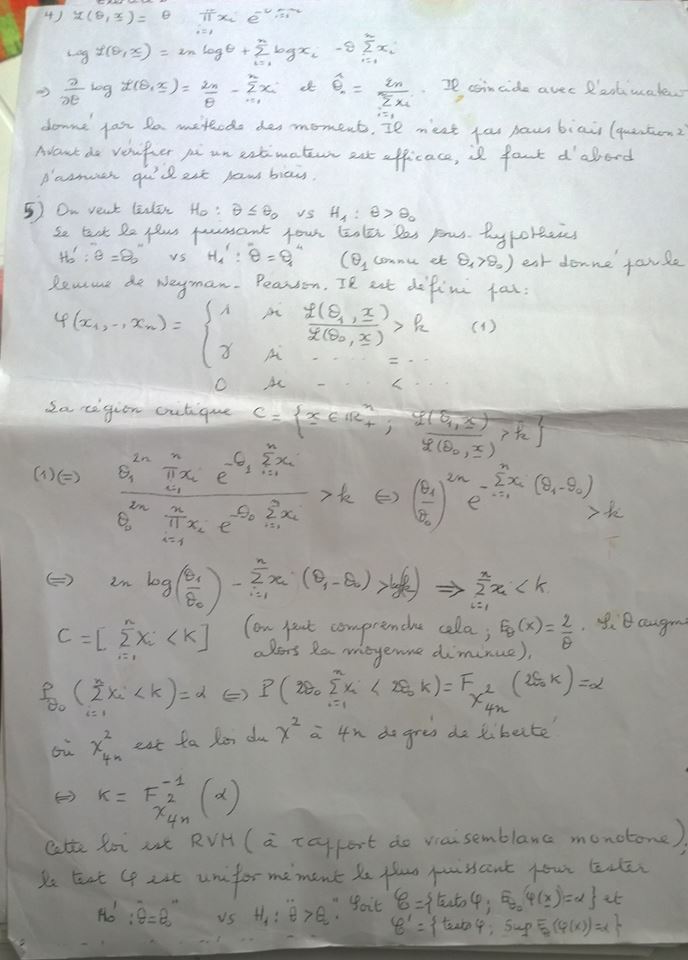 4) L(θ, x) = θ ∏_{i=1}^n x_i e^{-θ
log L(θ, x) = 2n log θ + Σ_{i=1}^n log x_i - θ Σ_{i=1}^n x_i
⇒ ∂/∂θ log L(θ, x) = 2n/θ - Σ_{i=1}^n x_i et θ̂_n = 2n / Σ_{i=1}^n x_i . Il coïncide avec l'estimateur
donné par la méthode des moments. Il n'est pas sans biais (question 2)
Avant de vérifier si un estimateur est efficace, il faut d'abord
s'assurer qu'il est sans biais.
5) On veut tester H₀ : θ ≤ θ₀ vs H₁ : θ > θ₀
Le test le plus puissant pour tester les sous-hypothèses
H₀' : "θ = θ₀" vs H₁' : "θ = θ₁" (θ₁ connu et θ₁ > θ₀) est donné par le
lemme de Neyman-Pearson. Il est défini par :
φ(x₁, .., x_n) = { 1 si L(θ₁, x) / L(θ₀, x) > k (1)
γ si - - - - - = - -
0 si - - - < - - -
La région critique C = { x ∈ ℝ₊ⁿ ; L(θ₁, x) / L(θ₀, x) > k }
(1) ⇔ θ₁^{2n} ∏_{i=1}^n x_i e^{-θ₁ Σ_{i=1}^n x_i} / θ₀^{2n} ∏_{i=1}^n x_i e^{-θ₀ Σ_{i=1}^n x_i} > k ⇔ (θ₁/θ₀)^{2n} e^{-Σ_{i=1}^n x_i (θ₁-θ₀)} > k
⇔ 2n log(θ₁/θ₀) - Σ_{i=1}^n x_i (θ₁-θ₀) > log(k) ⇒ Σ_{i=1}^n x_i < K
C = [ Σ_{i=1}^n X_i < K ] (on peut comprendre cela ; E_θ(X) = 2/θ . Si θ augme
alors la moyenne diminue),
P_{θ₀} ( Σ_{i=1}^n x_i < k) = α ⇔ P( 2θ₀ Σ_{i=1}^n x_i < 2θ₀ k) = F_{χ²_{4n}} (2θ₀ k) = α
où χ²_{4n} est la loi du χ² à 4n degrés de liberté
⇔ K = F^{-1}_{χ²_{4n}} (α)
Cette loi est RVM (à rapport de vraisemblance monotone),
le test φ est uniformément le plus puissant pour tester
H₀' : "θ = θ₀" vs H₁ : "θ > θ₀". Soit C = {tests φ ; E_{θ₀}(φ(x)) = α} et
C' = {tests φ ; Sup E_θ(φ(x)) = α}